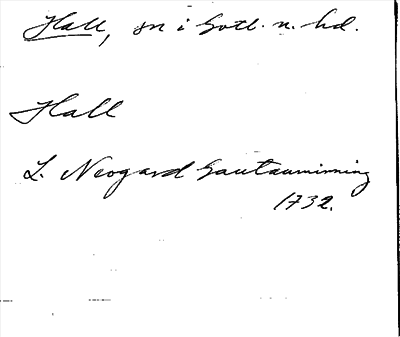 Hall, sn i Gotl. n. hd.
Hall
L. Neogard Gautauminning
1732.